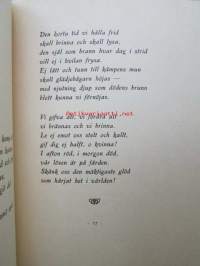 Den korta tid vi hålla frid
skall brinna och skall lysa,
den själ som brann hvar dag i strid
vill ej i hvilan frysa.
Ej lätt och tunn till kämpens mun
skall glädjebägarn höjas —
med njutning djup som dödens brunn
blott kunna vi förnöjas.
Vi gifva allt, vi fordra allt
vi brännas och vi brinna.
Le ej emot oss stolt och kallt,
gif dig ej halft, o kvinna!
I afton röd, i morgon död,
vår lösen är på färden.
Skänk oss den mäktigaste glöd
som härjat het i världen!